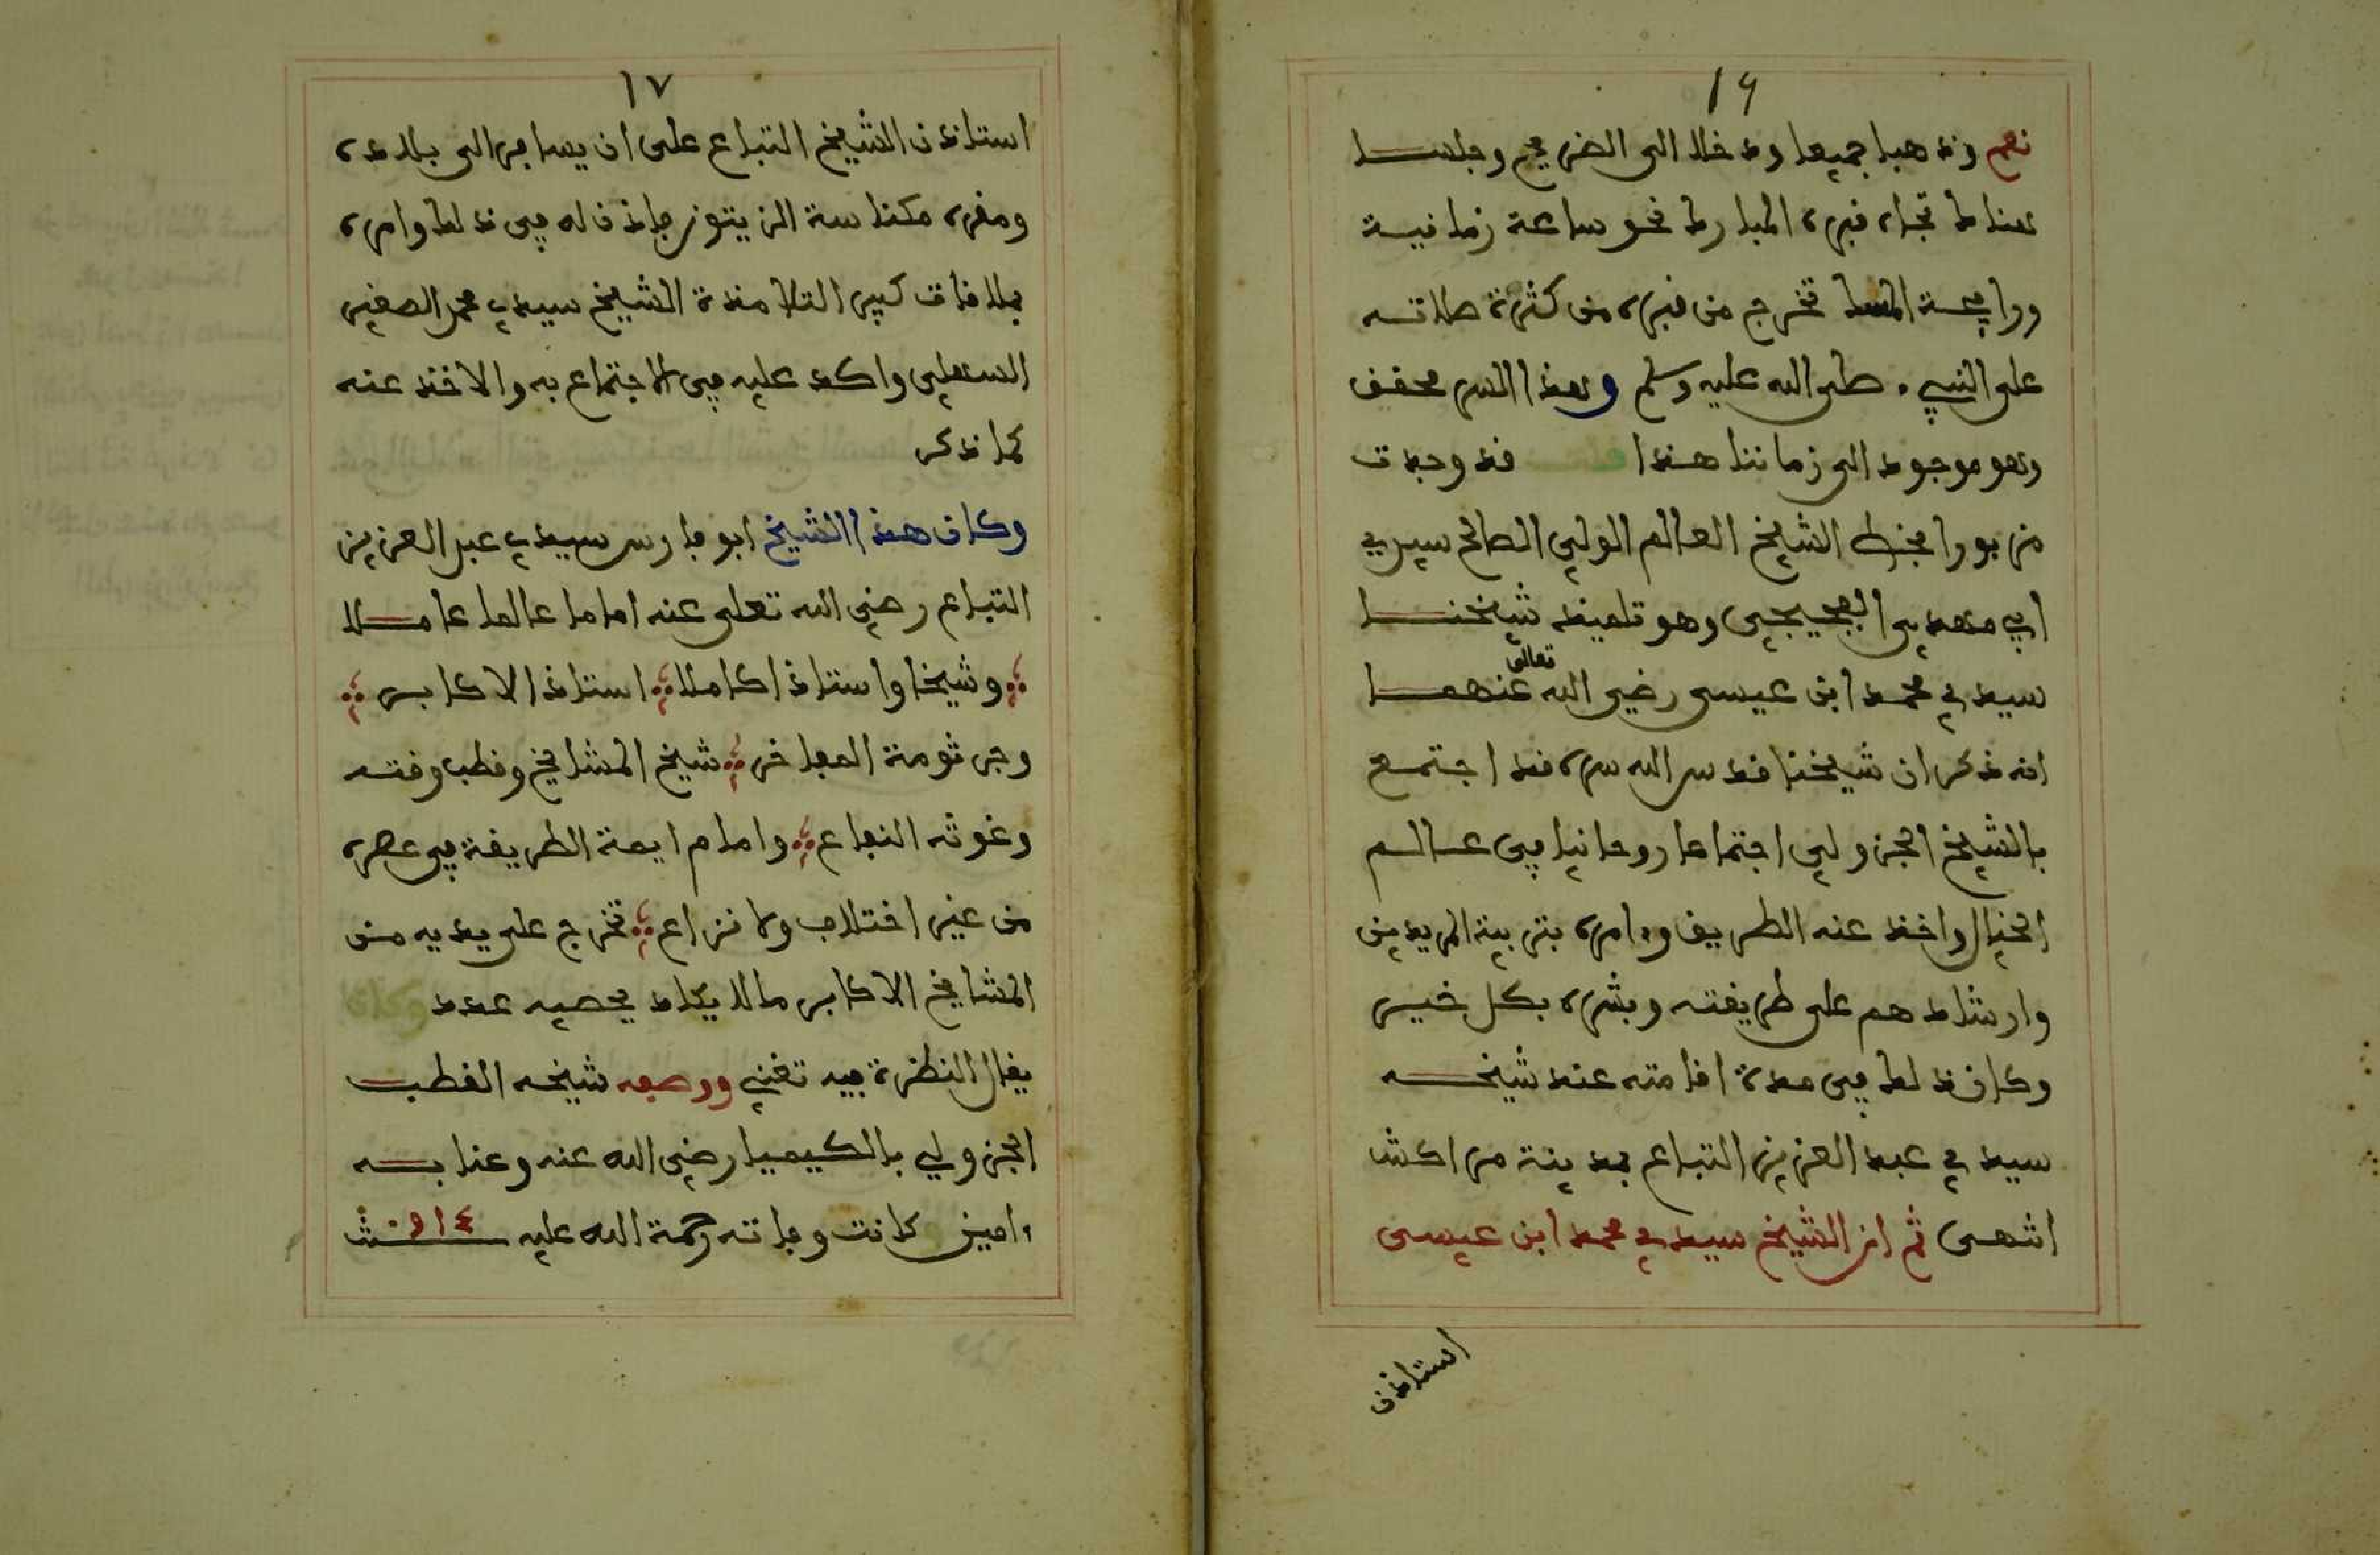 ١٦
نعم وذهبا جميعا ودخلا الى الضريح وجلسا
هناك تجاه قبره المبارك نحو ساعة زمانية
وراىحة المسك تخرج من قبره من كثرة صلاته
على النبيء صلى الله عليه وسلم وهذا السر محقق
وهو موجود الى زماننا هذا قلت قد وجدت
مزبورا بخط الشيخ العالم الولي الصالح سيدي
ابي مهدي الفجيجي وهو تلميذ شيخنا
سيدي محمد ابن عيسى رضي الله تعالى عنهما
انه ذكر ان شيخنا قدس الله سره قد اجتمع
بالشيخ الجزولي اجتماعا روحانيا في عالم
الخيال واخذ عنه الطريق وامره بتربية المريدين
وارشادهم على طريقته وبشره بكل خير
وكان ذلك في مدة اقامته عند شيخه
سيدي عبد العزيز التباع بمدينة مراكش
انتهى ثم ان الشيخ سيدي محمد ابن عيسى
استاذن
١٧
استاذن الشيخ التباع على ان يسافر الى بلده
ومقره مكناسة الزيتون فاذن له في ذلك وامره
بملاقات كبير التلامذة الشيخ سيدي محمد الصغير
السهلي واكد عليه في الاجتماع به والاخذ عنه
كما ذكر
وكان هذا الشيخ ابو فارس سيدي عبد العزيز
التباع رضي الله تعلى عنه اماما عالما عاملا
وشيخا واستاذا كاملا استاذ الاكابر
وجرثومة المفاخر شيخ المشايخ وقطب وقته
وغوثه النفاع وامام ايمة الطريقة في عصره
من غير اختلاف ولا نزاع تخرج على يديه من
المشايخ الاكابر ما لا يكاد يحصيه عدد وكان
يقال النظرة فيه تغني ووصفه شيخه القطب
الجزولي بالكيميا رضي الله عنه وعنا به
ءامين كانت وفاته رحمة الله عليه سنة ٩١٤